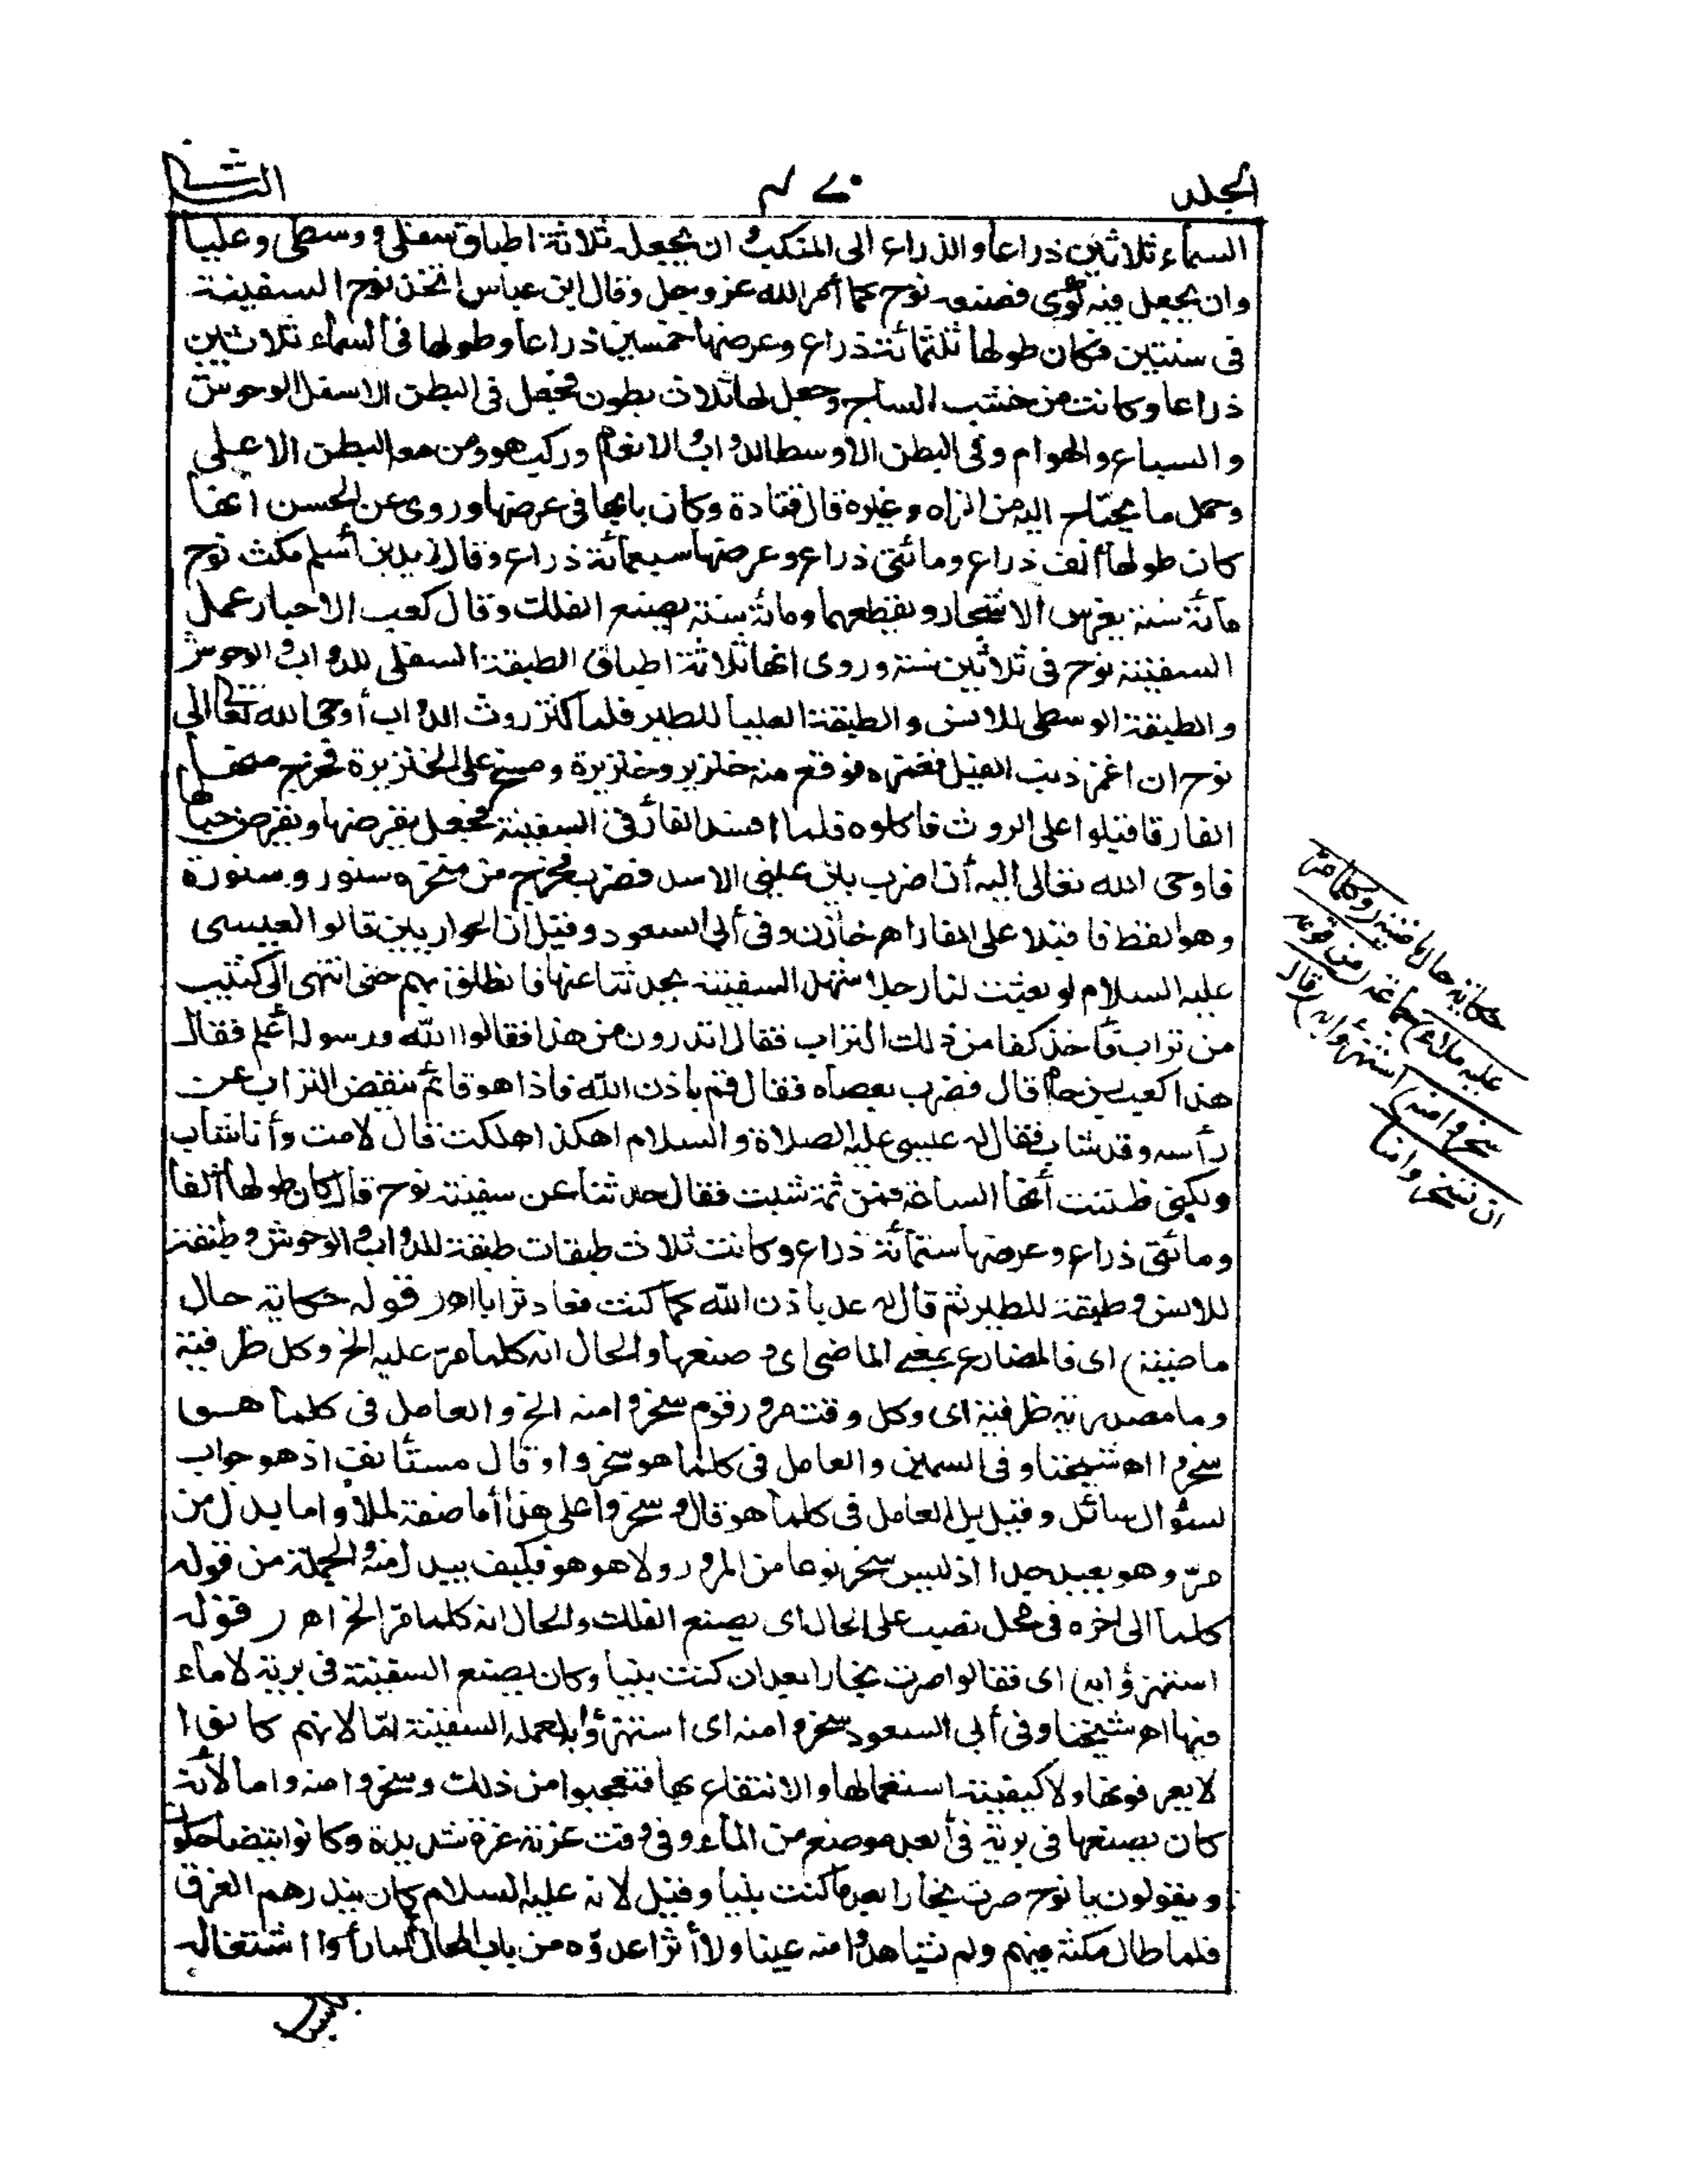 المجلد ٤٧٠ الثانى
السماء ثلاثين ذراعا والذراع الى المنكب وان يجعله ثلاثة اطباق سفلى ووسطى وعليا
وان يجعل فيه كوى فصنعه نوح كما أمر الله عز وجل وقال ابن عباس اتخذ نوح السفينة
فى سنتين فكان طولها ثلثمائة ذراع وعرضها خمسين ذراعا وطولها فى السماء ثلاثين
ذراعا وكانت من خشب الساج وجعل لها ثلاث بطون فجعل فى البطن الاسفل الوحوش
والسباع والهوام وفى البطن الاوسط الدواب والانعام وركب هو ومن معه البطن الاعلى
وحمل ما يحتاج اليه من الزاد وغيره قال قتادة وكان بابها فى عرضها وروى عن الحسن انها
كان طولها ألف ذراع ومائتى ذراع وعرضها سبعمائة ذراع وقال زيد بن أسلم مكث نوح
مائة سنة يغرس الاشجار ويقطعها ومائة سنة يصنع الفلك وقال كعب الاحبار عمل
السفينة نوح فى ثلاثين سنة وروى انها ثلاثة اطباق الطبقة السفلى للدواب والوحوش
والطبقة الوسطى للانس والطبقة العليا للطير فلما كثر روث الدواب أوحى الله تعالى الى
نوح ان اغمز ذنب الفيل فغمزه فوقع منه خنزير وخنزيرة ومسح على الخنزيرة فخرج منها
الفار فاقبلوا على الروث فاكلوه فلما افسد الفأر فى السفينة فجعل يقرضها ويقرض حبالها
فاوحى الله تعالى اليه أن اضرب بين عينى الاسد فضرب فخرج من منخره سنور وسنورة
وهو القط فاقبلا على الفار اهـ خازن وفى أبى السعود وقيل ان الحواريين قالوا لعيسى
عليه السلام لو بعثت لنا رجلا شهد السفينة يحدثنا عنها فانطلق بهم حتى انتهى الى كثيب
من تراب فأخذ كفا من ذلك التراب فقال اتدرون من هذا فقالوا الله ورسوله أعلم فقال
هذا كعب بن حام قال فضرب بعصاه فقال قم باذن الله فاذا هو قائم ينفض التراب عن
رأسه وقد شاب فقال له عيسى عليه الصلاة والسلام اهكذا هلكت قال لا مت وأنا شاب
ولكنى ظننت أنها الساعة فمن ثمة شبت فقال حدثنا عن سفينة نوح قال كان طولها ألفا
ومائتى ذراع وعرضها ستمائة ذراع وكانت ثلاث طبقات طبقة للدواب والوحوش وطبقة
للانس وطبقة للطير ثم قال له عد باذن الله كما كنت فعاد ترابا اهـ (قوله حكاية حال
ماضية) اى فالمضارع بمعنى الماضى اى وصنعها والحال انه كلما مر عليه الخ وكل ظرفية
وما مصدرية ظرفية اى وكل وقت مرور قوم سخروا منه الخ والعامل فى كلما هو
سخروا اهـ شيخنا وفى السمين والعامل فى كلما هو سخروا وقال مستأنف اذ هو جواب
لسؤال سائل وقيل بل العامل فى كلما هو قال وسخروا على هذا أما صفة لملأ واما بدل من
مرّ وهو بعيد جدا اذ ليس سخر نوعا من المرور ولا هو هو فكيف يبدل منه والجملة من قوله
كلما الى اخره فى محل نصب على الحال اى يصنع الفلك والحال انه كلما مرّ الخ اهـ (قوله
استهزؤا به) اى فقالوا صرت نجارا بعد ان كنت نبيا وكان يصنع السفينة فى برية لا ماء
فيها اهـ شيخنا وفى أبى السعود سخروا منه اى استهزؤا به لعمله السفينة امّا لانهم كانوا
لا يعرفونها ولا كيفية استعمالها والانتفاع بها فتعجبوا من ذلك وسخروا منه واما لأنه
كان يصنعها فى برية فى أبعد موضع من الماء وفى وقت عزته عزة شديدة وكانوا يتضاحكون
ويقولون يا نوح صرت نجارا بعد ما كنت نبيا وقيل لانه عليه السلام كان ينذرهم الغرق
فلما طال مكثه فيهم ولم يشاهدوا منه عينا ولا أثرا عدوّه من باب المحال لما رأوا اشتغاله
حكاية حال ماضية (وكلما مرّ
عليه ملأ) جماعة (من قومه
سخروا منه) استهزؤا به (قال
ان تسخروا منا